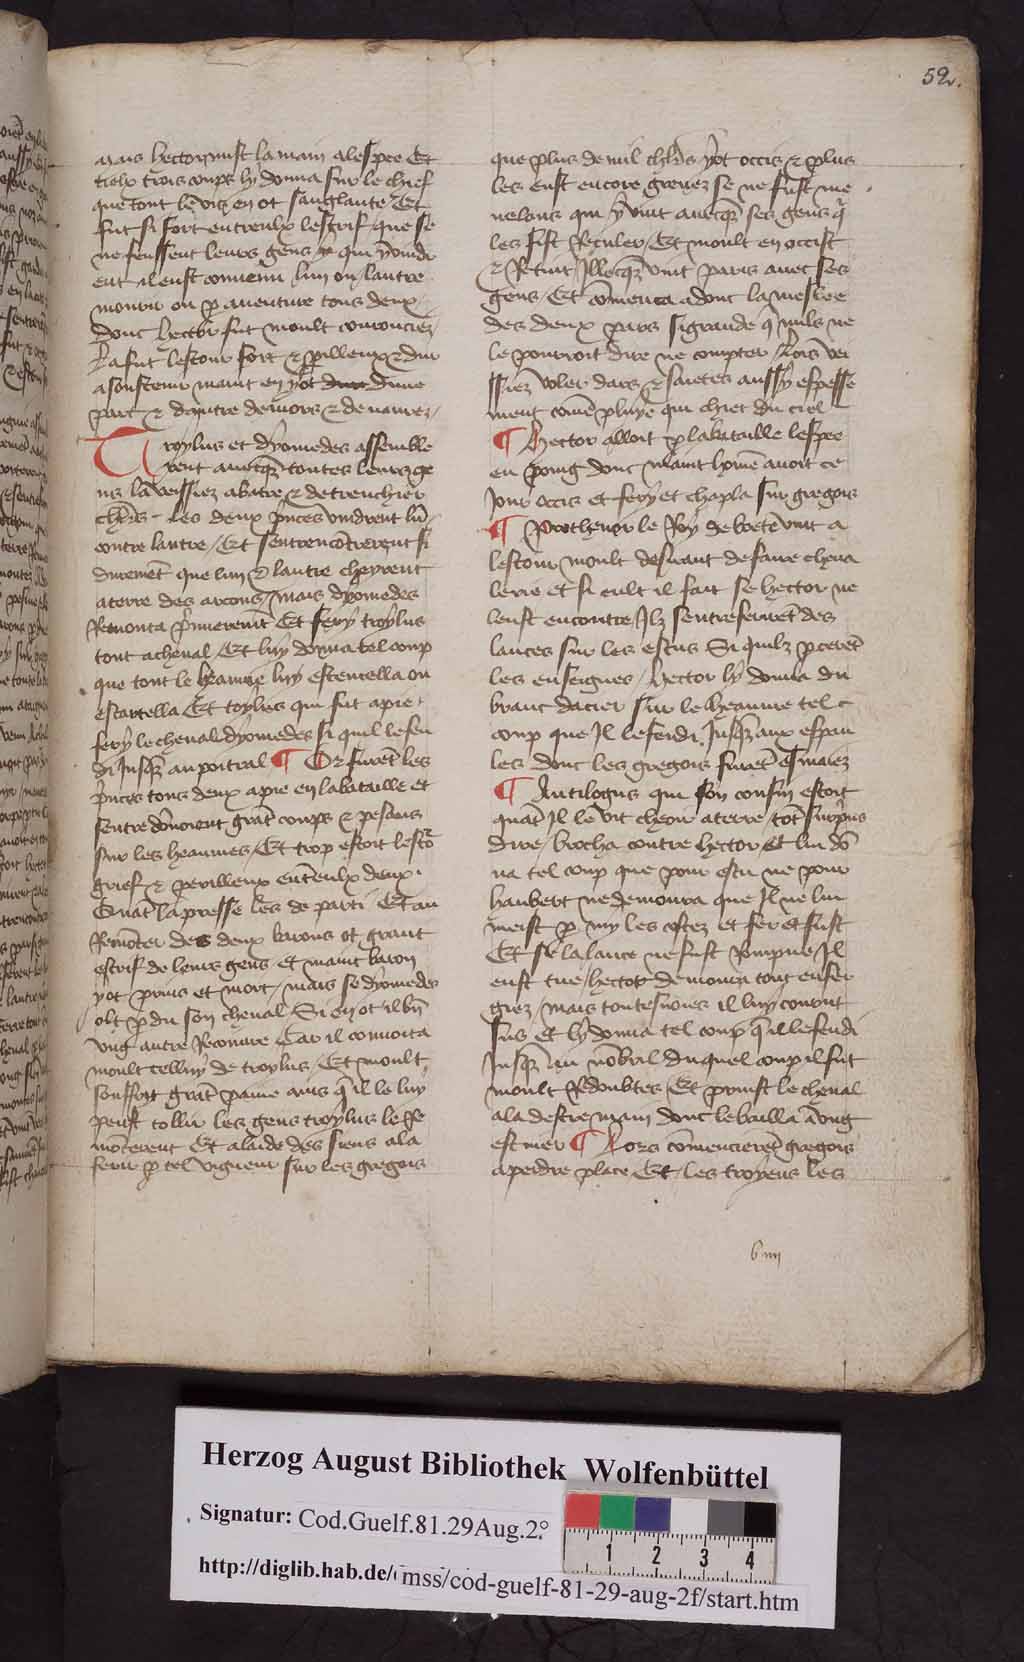 52.
mais hector mist la main a lespee Et
tielx trois coups ly donna sur le chief
que tout le vis en ot sanglante Et
fut si fort entreulx lestrif que se
ne feussent leurs gens qui y vindr
ent il eust convenu lun ou lautre
mourir ou p aventure tous deux /
donc hector fut moult couroucie /
La fut lestour fort & perilleux & dur
a soustenir maint en y ot dune
part & dautre de mors & de navrez /
Troylus et dyomedes assemble
rent avecqz toutes leurs ge
ns la veissiez abatre & detrenchier
chlrs - les deux princes vindrent lun
contre lautre / Et sentrencotrerent si
durement que lun & lautre cheyrent
a terre des arcons / mais dyomedes
Remonta primerement Et fery troylus
tout a cheval / Et luy donna tel coup
que tout le heaume luy estencella ou
escartella Et troylus qui fut a pie
fery le cheval dyomedes si quil le fen
di Jusqz au poitral ¶ Or furet les
princes tous deux a pie en la bataille et
sentre donoient grat coups & pesans
sur les heaumes / Et trop estoit lesto
grief & perilleux entreulx deux .
Quat la presse les de parti Et au
Remoter des deux barons ot grant
estrif de leurs gens et maint baron
y ot prins et mort / mais se dyomedes
olt p du son cheval Si en ot il bn
ung autre Recouvre Car il convoita
moult celluy de troylus / Et moult
souffrit grat paine ains q il le luy
peust tollir les gens troylus le Re
moterent Et a laide des siens ala
ferir p tel vigueur sur les gregois
que plus de mil chlrs y ot occis & plus
les eust encore grevez se ne fust me
nelaus qui y vint avecqz ses gens q
les fist Reculer / Et moult en occist
& Retint / Illecqz vint paris avec ses
gens / Et comenca adonc la meslee
des deux pars si grande q nuls ne
le pourroit dire ne compter / Lors vei
ssiez voler dars & saietes aussy espesse
ment come pluye qui chiet du ciel
¶ Hector alloit p la bataille lespee
en poing donc maint home avoit ce
Jour occis et fery et chapla sur gregois
¶ Prothenor le Roy de boete vint a
lestour moult desirant de faire cheva
lerie et si eult il fait se hector ne
leust encontre Ilz sentreferiret des
lances sur les escus Si quilz perceret
les enseignes / hector ly donna du
branc dacier sur le heaume tel c
coup que Il le fendi Jusqz aux espau
les donc les gregois furet esmaiez
¶ Antilogus qui son cousin estoit
quat Il le vit cheoir a terre / tot surprins
dire / brocha contre hector Et lui do
na tel coup que pour escu ne pour
haubert ne demoura que Il ne lui
meist p my les costez et fer et fust
Et se la lance ne fust Rompue Il
eust tue / hector demoura tout enfer
giez / mais toutesvoies il luy courut
sus et ly donna tel coup q il le fendi
Jusqz au nobril duquel coup il fut
moult Redoubtes / Et prinst le cheval
a la destre main donc le bailla a ung
escuier ¶ Lors comencieret gregois
a perdre place Et / les troyens les
b iiii
Herzog August Bibliothek Wolfenbüttel
Signatur: Cod.Guelf.81.29Aug.2°
http://diglib.hab.de/mss/cod-guelf-81-29-aug-2f/start.htm
1 2 3 4